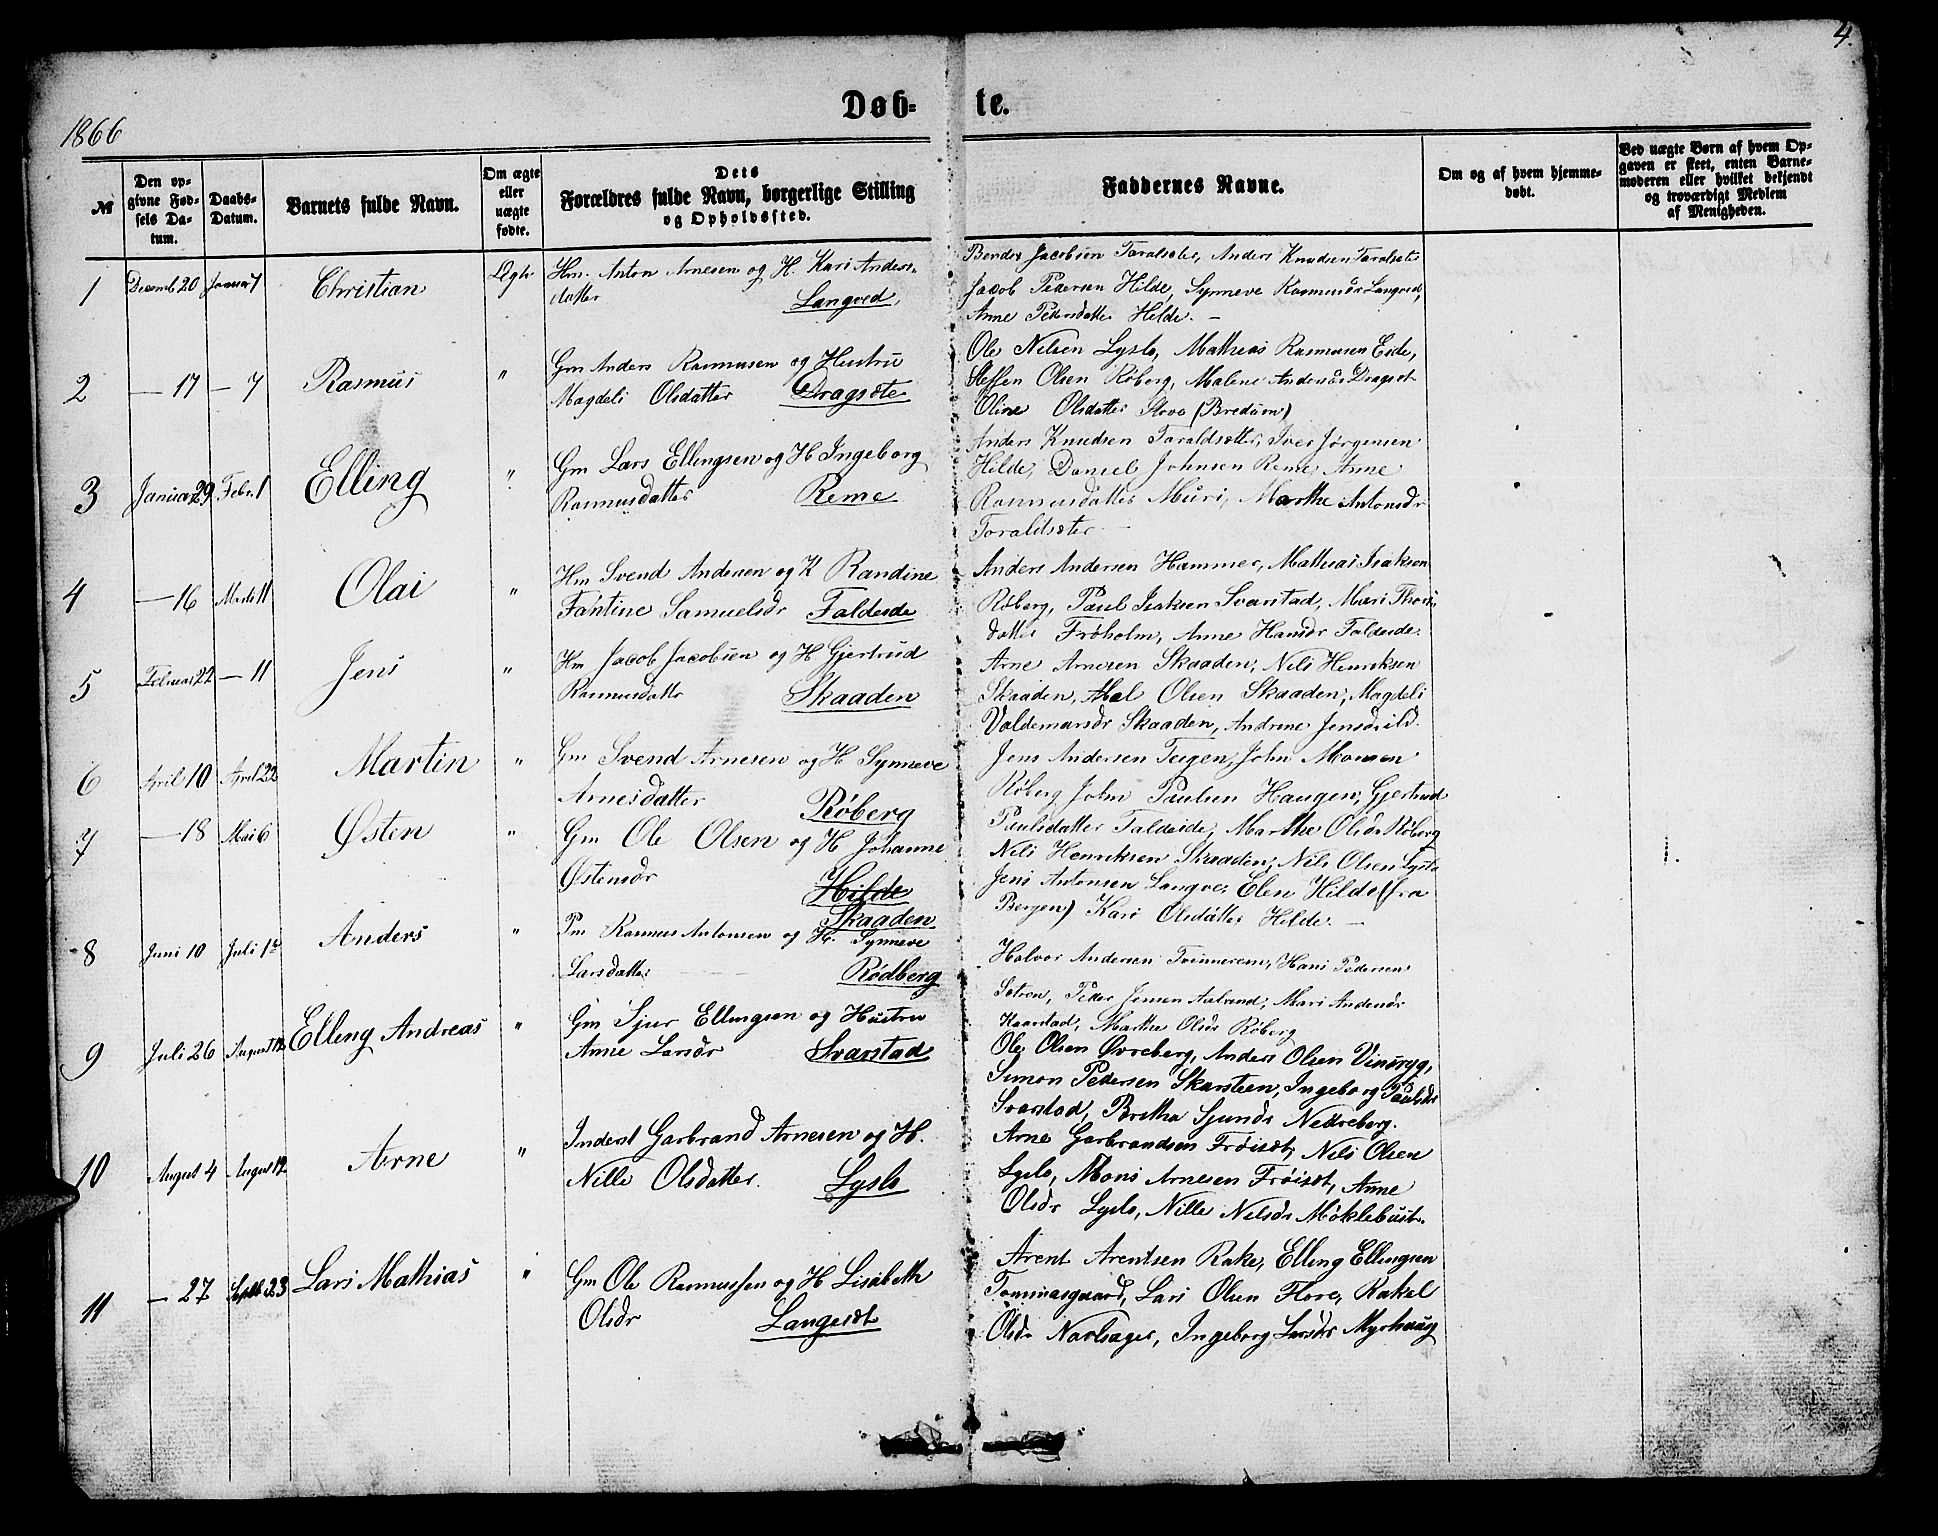 4.
Døb-te.
1866
№
Den op-
givne Fød-
sels Da-
tum.
Daabs-
Datum.
Barnets fulde Navn.
Om ægte
eller
uægte
fødte.
Dets
Forældres fulde Navn, borgerlige Stilling
og Opholdssted.
Faddernes Navne.
Om og af hvem hjemme-
døbt.
Ved uægte Børn af hvem Op-
gaven er skeet, enten Barne-
moderen eller hvilket bekjendt
og troværdigt Medlem
af Menigheden.
1 Decemb 20 Januar 7 Christian Ægte Hm. Anton Arnesen og H. Kari Anders-
datter Langved.
Jacobsen Taraldseter, Anders Knudsen Taralseter
Jacob Pedersen Hilde, Synneve Rasmusdr Langved,
Anne Petersdatter Hilde. —
2 — 17 — 7 Rasmus " Gm Anders Rasmusen og Hustru
Magdeli Olsdatter Dragsøte
Ole Nilsen Lyslo, Mathias Rasmusen Eide,
Steffen Olsen Røberg, Malene Andersdr Dragset
Oline Olsdatter (Bredum)
3 Januar 29 Febr. 1 Elling " Gm Lars Ellingsen og H Ingeborg
Rasmusdatter Reme
Anders Knudsen Taraldsetter, Iver Jørgensen
Hilde, Daniel Johnsen Reme Anne
Rasmusdatter Muri, Marthe Antonsdr
Taraldseter —
4 — 16 Marts 11 Olai " Hm Svend Andersen og K Randine
Fantine Samuelsdr Faldeide
Anders Andersen Hammer, Mathias Isaksen
Røberg, Paul Isaksen Svarstad, Mari Thors
datter Frøholm, Anne Hansdr Faldeide.
5 Februar 22 — 11 Jens " Hm Jacob Jacobsen og H Gjertrud
Rasmusdatter Skaaden
Arne Arnesen Skaaden, Nils Henriksen
Skaaden, Olsen Skaaden, Magdeli
Valdemarsdr Skaaden, Andrine Jensdr
6 April 10 April 22 Martin " Gm Svend Arnesen og H Synneve
Arnesdatter Røberg
Jens Andersen Teigen, John Monsen
Røberg John Paulsen Haugen, Gjertrud
Paulsdatter Faldeide, Marthe Olsdr Røberg
7 — 18 Mai 6 Østen " Gm Ole Olsen og H Johanne
Østensdr Hilde
Skaaden
Nils Henriksen Skaaden, Nils Olsen Lyslo
Jens Antonsen Langve, Elen Hilde (fra
Bergen) Kari Olsdatter Hilde. —
8 Juni 10 Juli 1ste Anders " Pm Rasmus Antonsen og H. Synneve
Larsdatter Rødberg
Halvor Andersen Tvinnerem, Hans Pedersen
Setren, Peder Jensen, Mari Andersdr
Kaarstad, Marthe Olsdr Røberg
9 Juli 26 August 12 Elling Andreas " Gm Sjur Ellingsen og Hustru
Anne Larsdr Svarstad
Ole Olsen Øvreberg, Anders Olsen Vinsryg,
Simon Pedersen Skarsteen, Ingeborg Paulsdr
Svarstad, Brithe Sjursdr Nedreberg.
10 August 4 August 12 Arne " Inderst Garbrand Arnesen og H.
Nille Olsdatter. Lyslo
Arne Garbrandsen Frøiset, Nils Olsen
Lyslo, Mons Arnesen Frøiset, Anne
Olsdr Lyslo, Nille Nilsdr Møklebust.
11 — 27 Septb 23 Lars Mathias " Gm Ole Rasmussen og H Lisabeth
Olsdr Langesæt
Arent Arentsen Rake, Elling Ellingsen
Tommasgaard, Lars Olsen Flore, Rakel
Olsdr Navlsager, Ingeborg Larsdr Myrhaug